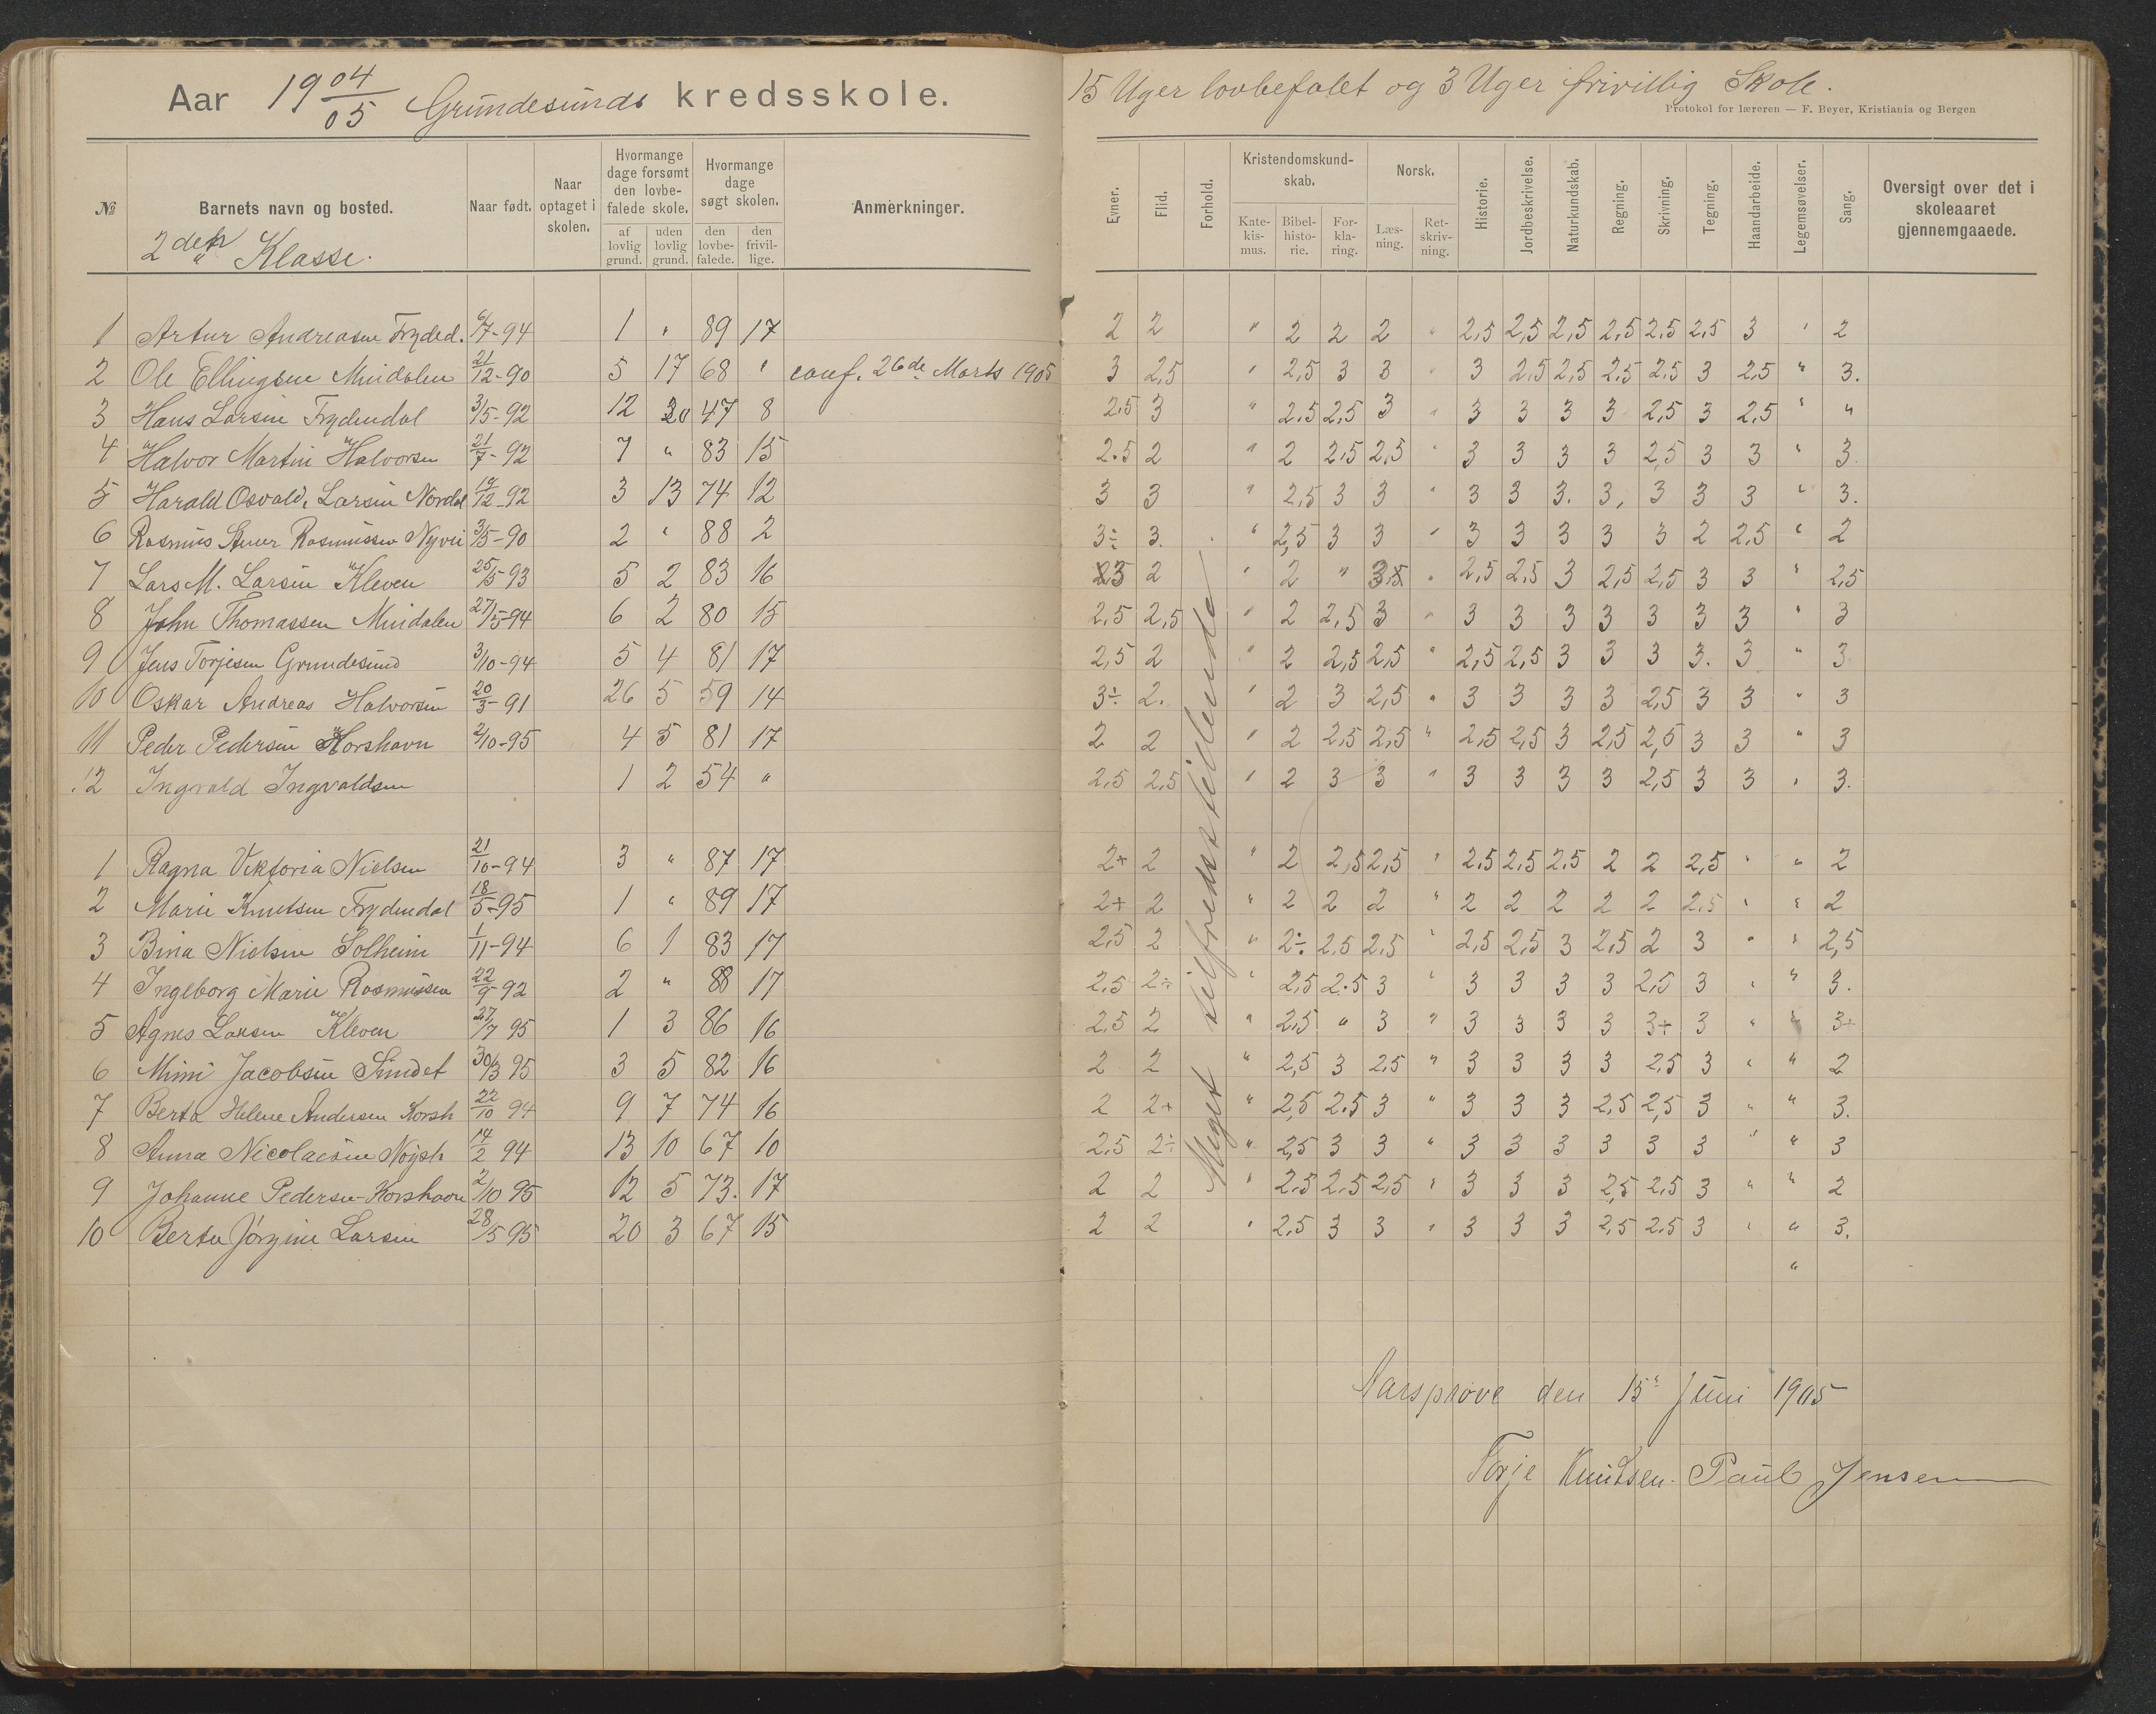 Aar 19 04/05 Grundesunds kredsskole.
15 Uger lovbefalet og 3 Uger frivillig Skole.
Protokol for læreren — F. Beyer, Kristiania og Bergen
№ Barnets navn og bosted. Naar født. Naar optaget i skolen. Hvormange dage forsømt den lovbefalede skole. af lovlig grund. uden lovlig grund. Hvormange dage søgt skolen. den lovbefalede. den frivillige. Anmerkninger.
Evner. Flid. Forhold. Kristendomskundskab. Katekismus. Bibelhistorie. Forklaring. Norsk. Læsning. Retskrivning. Historie. Jordbeskrivelse. Naturkundskab. Regning. Skrivning. Tegning. Haandarbeide. Legemsøvelser. Sang. Oversigt over det i skoleaaret gjennemgaaede.
2den Klasse.
1 Artur Andreasen Fryded. 6/7-94 1 " 89 17 2 2 " 2 2 2 " 2,5 2,5 2,5 2,5 2,5 2,5 3 " 2
2 Ole Ellingsen Mindalen 21/12-90 5 17 68 " conf. 26de Marts 1905 3 2,5 " 2,5 3 3 " 3 2,5 2,5 2,5 2,5 3 2,5 " 3.
3 Hans Larsen Frydendal 3/5-92 12 20 47 8 2,5 3 " 2,5 2,5 3 " 3 3 3 3 2,5 3 2,5 " "
4 Halvor Martin Halvorsen 21/7-92 7 " 83 15 2.5 2 " 2 2,5 2,5 " 3 3 3 3 2,5 3 3 " 3.
5 Harald Osvald Larsen Nordal 19/12-92 3 13 74 12 3 3 " 2,5 3 3 " 3 3 3. 3, 3 3 3 " 3.
6 Rasmus Rasmussen Nyvei 3/5-90 2 " 88 2 3÷ 3. " 2,5 3 3 " 3 3 3 3 3 2 2,5 " 2
7 Lars M. Larsen Kleven 25/5-93 5 2 83 16 2 " 2 " " 2,5 2,5 3 2,5 2,5 3 3 " 2,5
8 John Thomassen Mindalen 27/5-94 6 2 80 15 2,5 2,5 " 2 2,5 3 " 3 3 3 3 3 3 3 " 3
9 Jens Torjesen Grundesund 3/10-94 5 4 81 17 2,5 2 " 2 2,5 2,5 " 2,5 2,5 3 3 3 3. 3 " 3
10 Oskar Andreas Halvorsen 20/3-91 26 5 59 14 3÷ 2. " 2 3 2,5 " 3 3 3 3 2,5 3 3 " 3
11 Peder Pedersen Korshavn 2/10-95 4 5 81 17 2 2 " 2 2,5 2,5 " 2,5 2,5 3 2,5 2,5 3 3 " 3
12 Ingvald Ingvaldsen 1 2 54 " 2,5 2,5 " 2 3 3 " 3 3 3 3 2,5 3 3 " 3.
1 Ragna Viktoria Nielsen 21/10-94 3 " 87 17 2+ 2 " 2 2,5 2,5 " 2,5 2,5 2,5 2 2 2,5 " " 2
2 Marie Knutsen Frydendal 18/5-95 1 " 89 17 2+ 2 " 2 2 2 " 2 2 2 2 2 2,5 " " 2
3 Bina Nielsen Solheim 1/11-94 6 1 83 17 2,5 2 " 2÷ 2,5 2,5 " 2,5 2,5 3 2,5 2 3 " " 2,5
4 Ingeborg Marie Rasmussen 22/9-92 2 " 88 17 2,5 2÷ " 2,5 2.5 3 " 3 3 3 3 2,5 3 " " 3.
5 Agnes Larsen Kleven 27/7 95 1 3 86 16 2,5 2 " 2,5 " 3 " 3 3 3 3 3+ 3 " " 3+
6 Mimi Jacobsen Sundet 30/3 95 3 5 82 16 2 2 " 2,5 3 2,5 " 3 3 3 3 2,5 3 " " 2
7 Berta Helene Andersen Korsh 22/10 94 9 7 74 16 2 2+ " 2,5 2.5 3 " 3 3 3 2,5 2,5 3 " " 3.
8 Anna Nicolaisen 14/2 94 13 10 67 10 2.5 2÷ " 2,5 3 3 " 3 3 3 3 3 3 " " 3
9 Johanne Pedersen-Korshavn 2/10 95 12 5 73. 17 2 2 " 2,5 2.5 2,5 " 3 3 3 2,5 2,5 3 " " 2
10 Berte Jørgine Larsen 28/5 95 20 3 67 15 2 2 " 2,5 3 3 " 3 3 3 2,5 2,5 3 " " 3.
"
Meget tilfredsstillende
Aarsprøve den 15de Juni 1905
Torje Knudsen. Paul Jensen